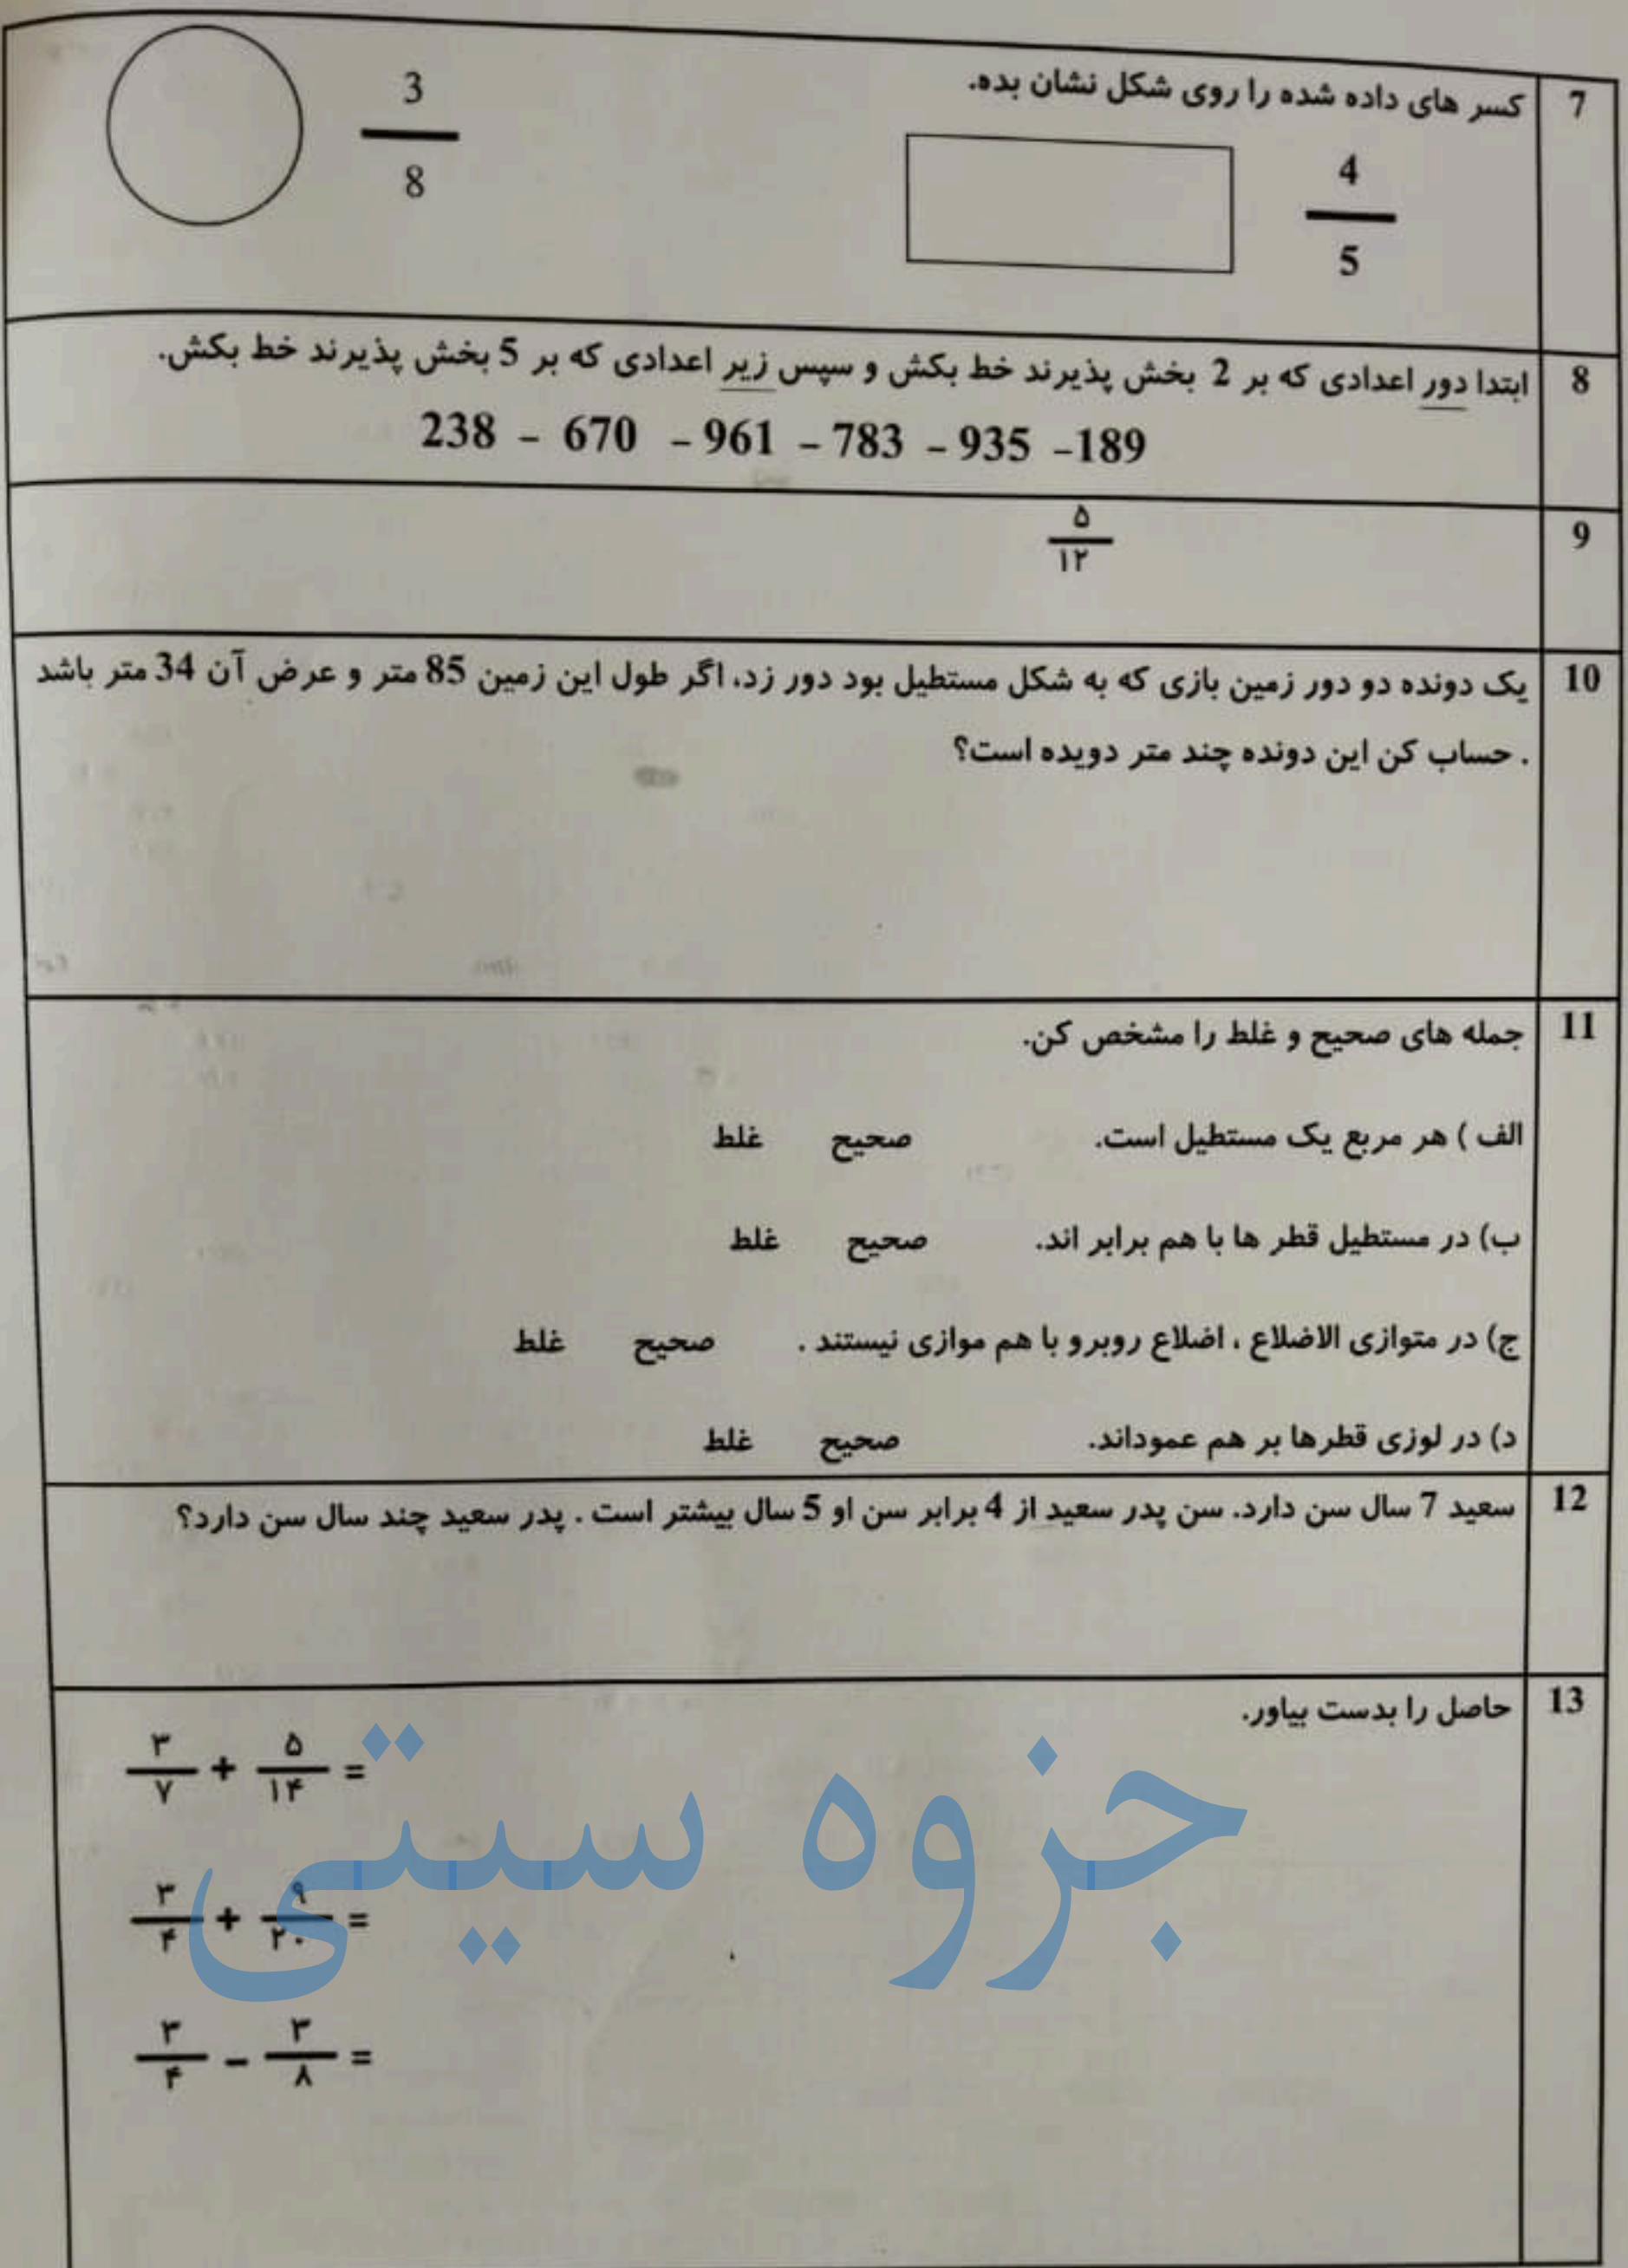 7 کسر های داده شده را روی شکل نشان بده.
4/5
3/8
8 ابتدا دور اعدادی که بر 2 بخش پذیرند خط بکش و سپس زیر اعدادی که بر 5 بخش پذیرند خط بکش.
238 - 670 - 961 - 783 - 935 - 189
9
۵/۱۲
10 یک دونده دو دور زمین بازی که به شکل مستطیل بود دور زد، اگر طول این زمین 85 متر و عرض آن 34 متر باشد
. حساب کن این دونده چند متر دویده است؟
11 جمله های صحیح و غلط را مشخص کن.
الف ) هر مربع یک مستطیل است. صحیح غلط
ب) در مستطیل قطر ها با هم برابر اند. صحیح غلط
ج) در متوازی الاضلاع ، اضلاع روبرو با هم موازی نیستند . صحیح غلط
د) در لوزی قطرها بر هم عموداند. صحیح غلط
12 سعید 7 سال سن دارد. سن پدر سعید از 4 برابر سن او 5 سال بیشتر است . پدر سعید چند سال سن دارد؟
13 حاصل را بدست بیاور.
۳/۷ + ۵/۱۴ =
۳/۴ + ۹/۲۰ =
۳/۴ - ۳/۸ =
جزوه سیتی